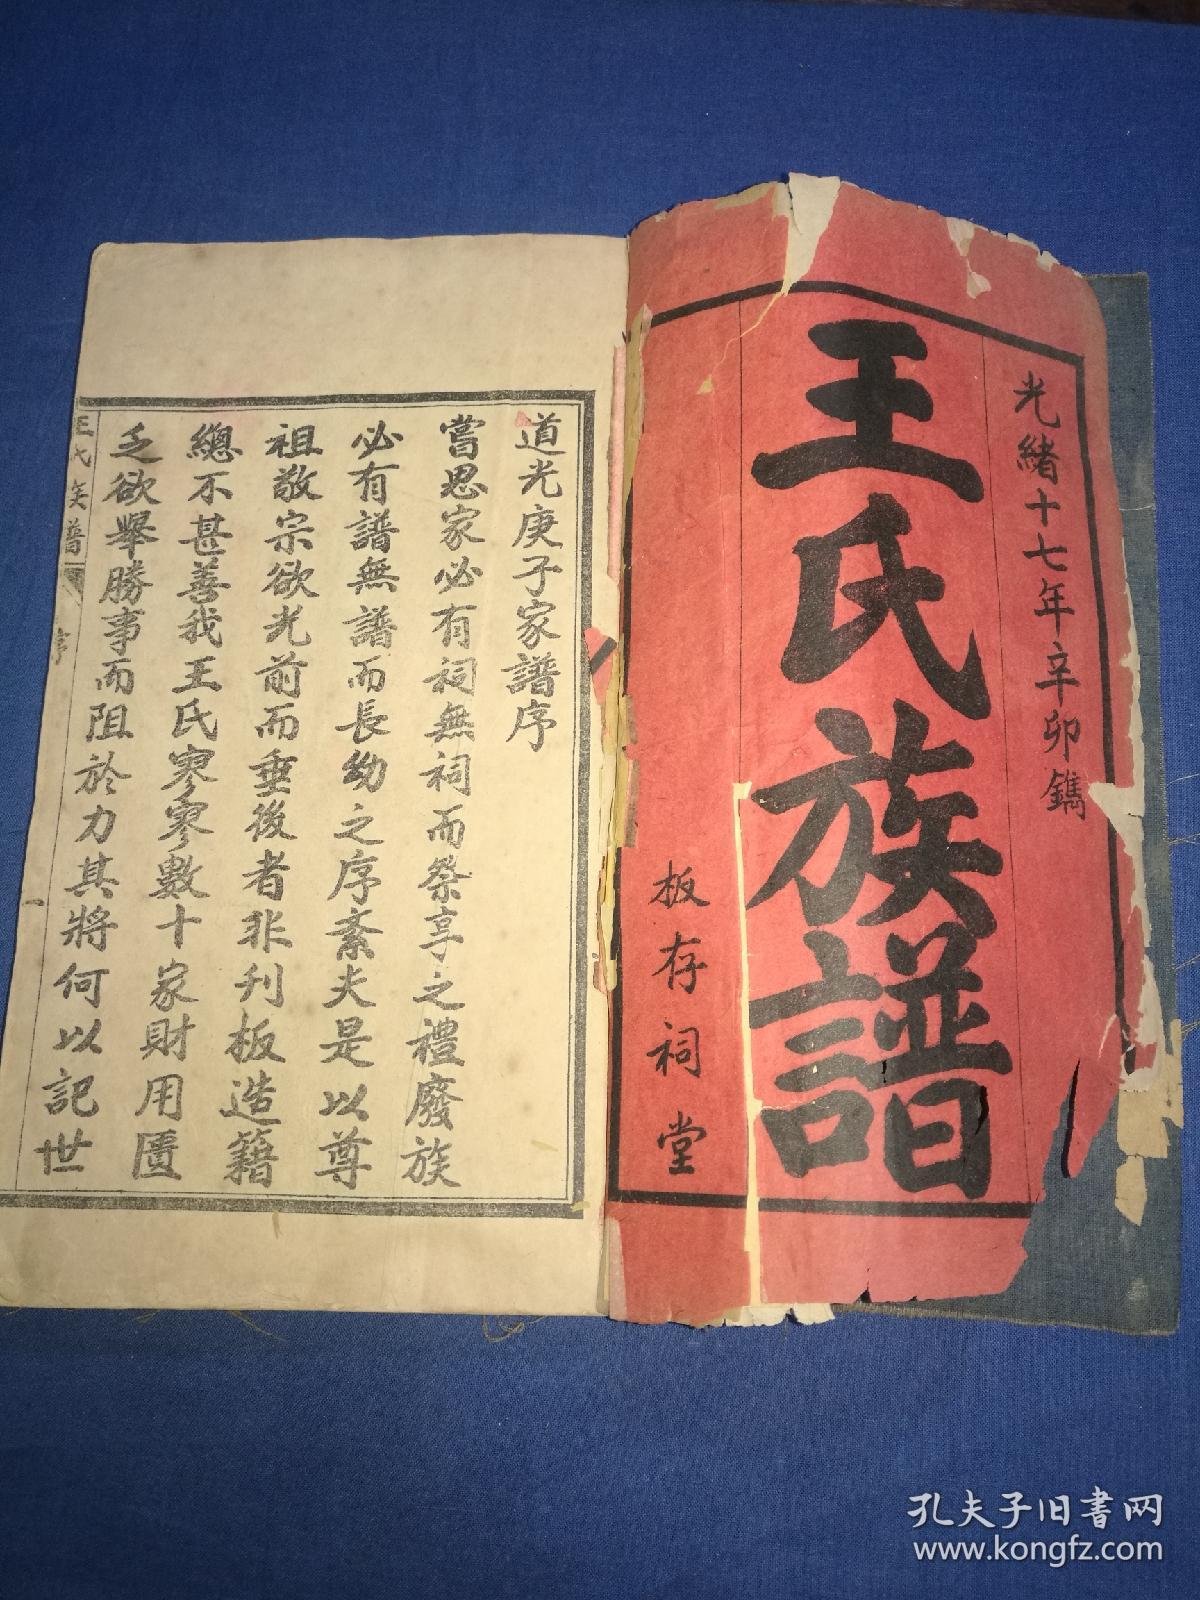 光緒十七年辛卯鐫
王氏族譜
板存祠堂
道光庚子家譜序
嘗思家必有祠無祠而祭享之禮廢族
必有譜無譜而長幼之序紊夫是以尊
祖敬宗欲光前而垂後者非刋板造籍
總不甚善我王氏寥寥數十家財用匱
乏欲舉勝事而阻於力其將何以記世
王氏族譜
序
孔夫子旧书网
www.kongfz.com